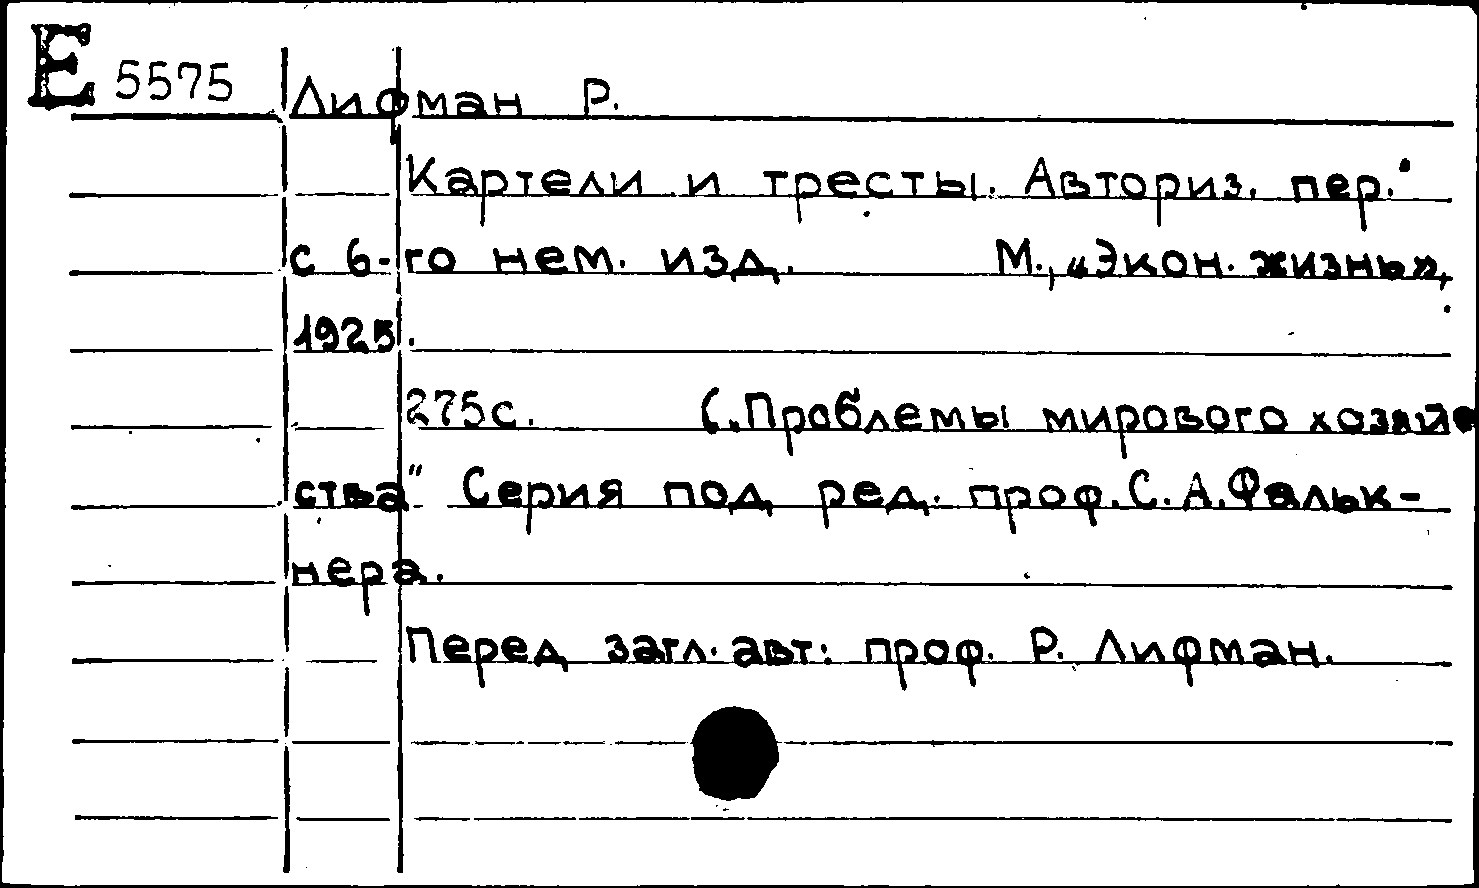 Е 5575 Лифман Р.
Картели и тресты. Авториз. пер.
с 6-го нем. изд. М., «Экон. жизнь»,
1925.
275с. („Проблемы мирового хозяй-
ства" Серия под ред. проф. С. А. Фальк-
нера.
Перед загл. авт: проф. Р. Лифман.